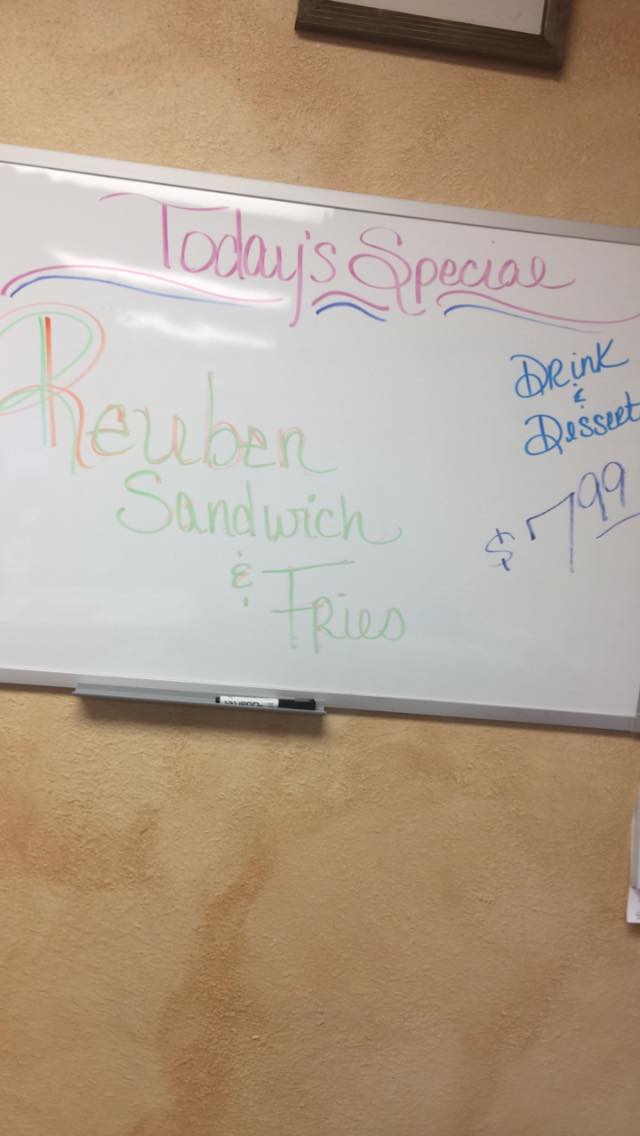 Today's Special
Reuben
Sandwich
& Fries
Drink
&
Dessert
$7.99